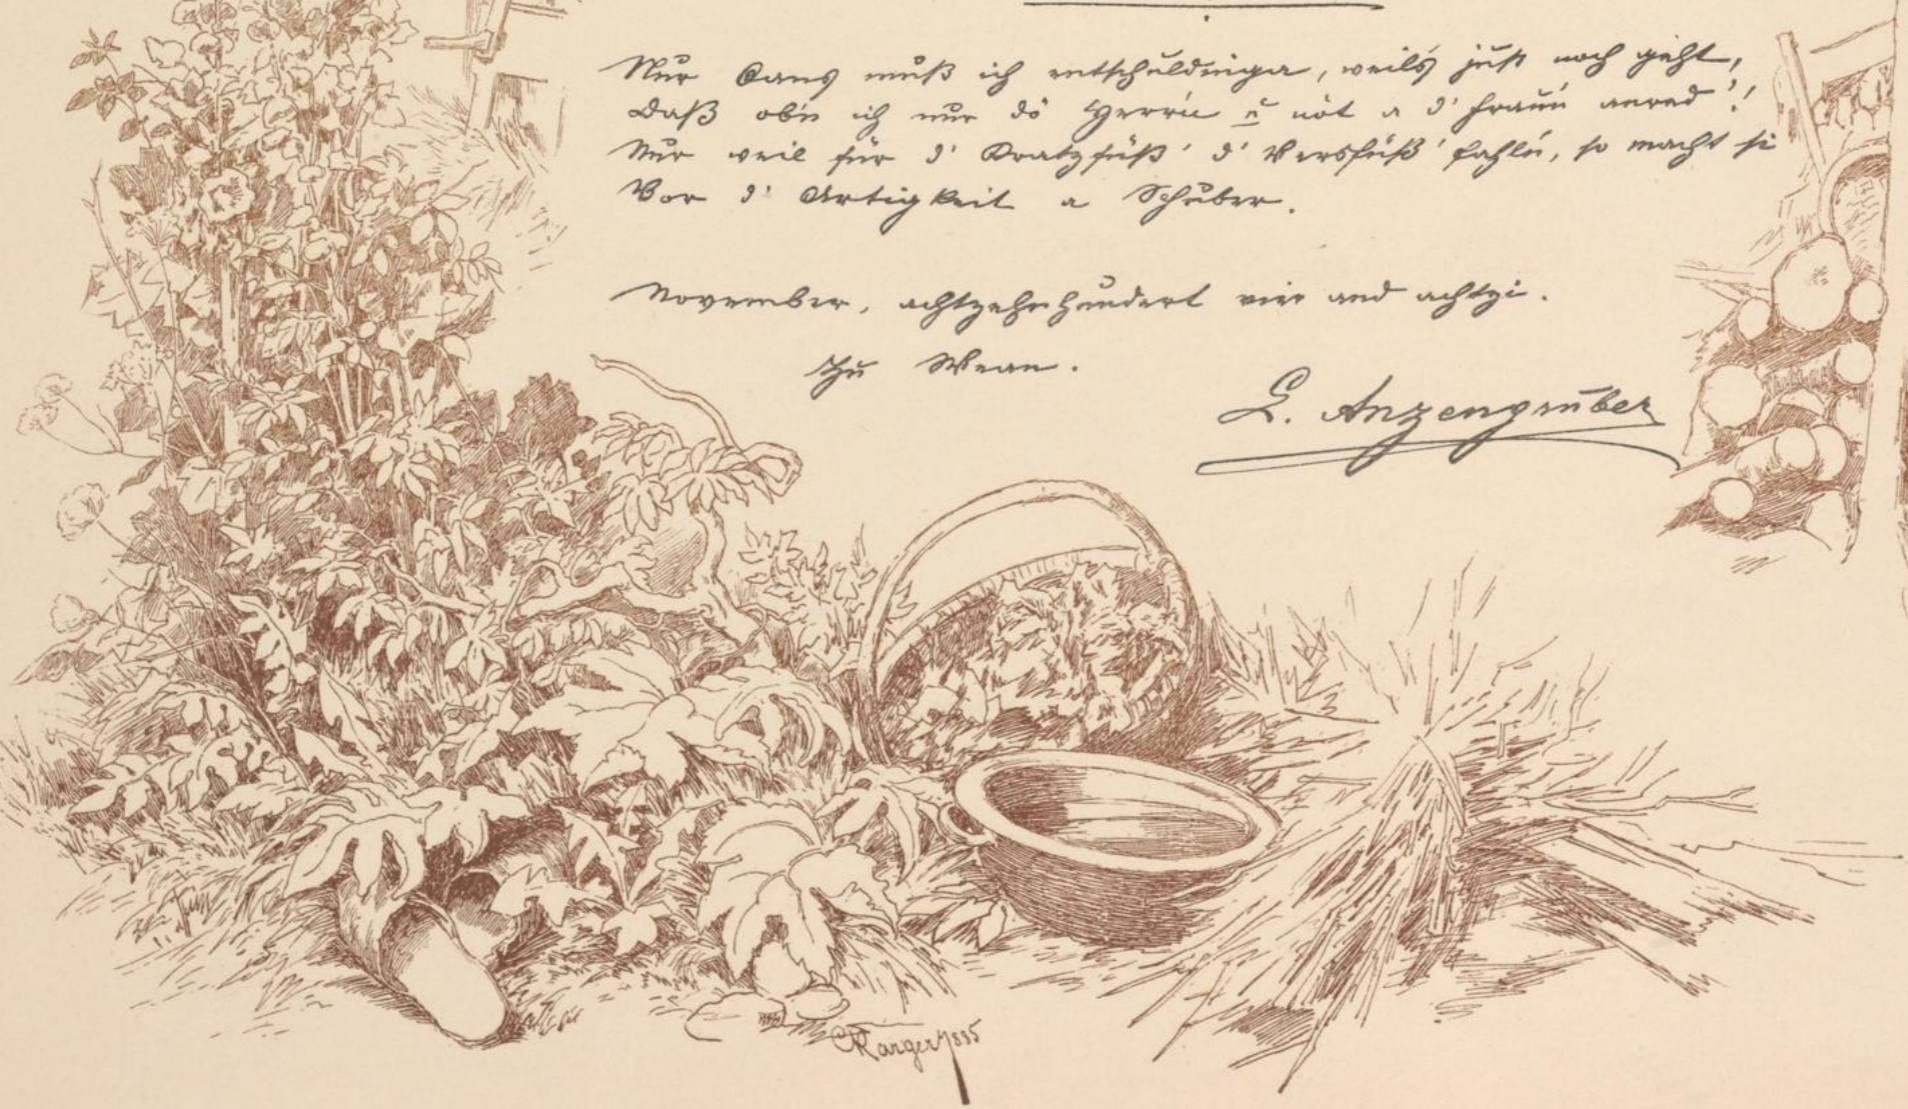 Nur Oans muß ich entschuldinga, weil's just noch geht,
Daß ob'n ich nur dö Herrn u nöt a d' Frau'n anred'!
Nur weil für d' Kratzfüß' d' Versfüß' fahl'n, so macht si
Vor d' Artigkeit a Schuber.
November, achtzehnhundert vier und achtzi.
Zu Wean.
L. Anzengruber
C Karger 1885